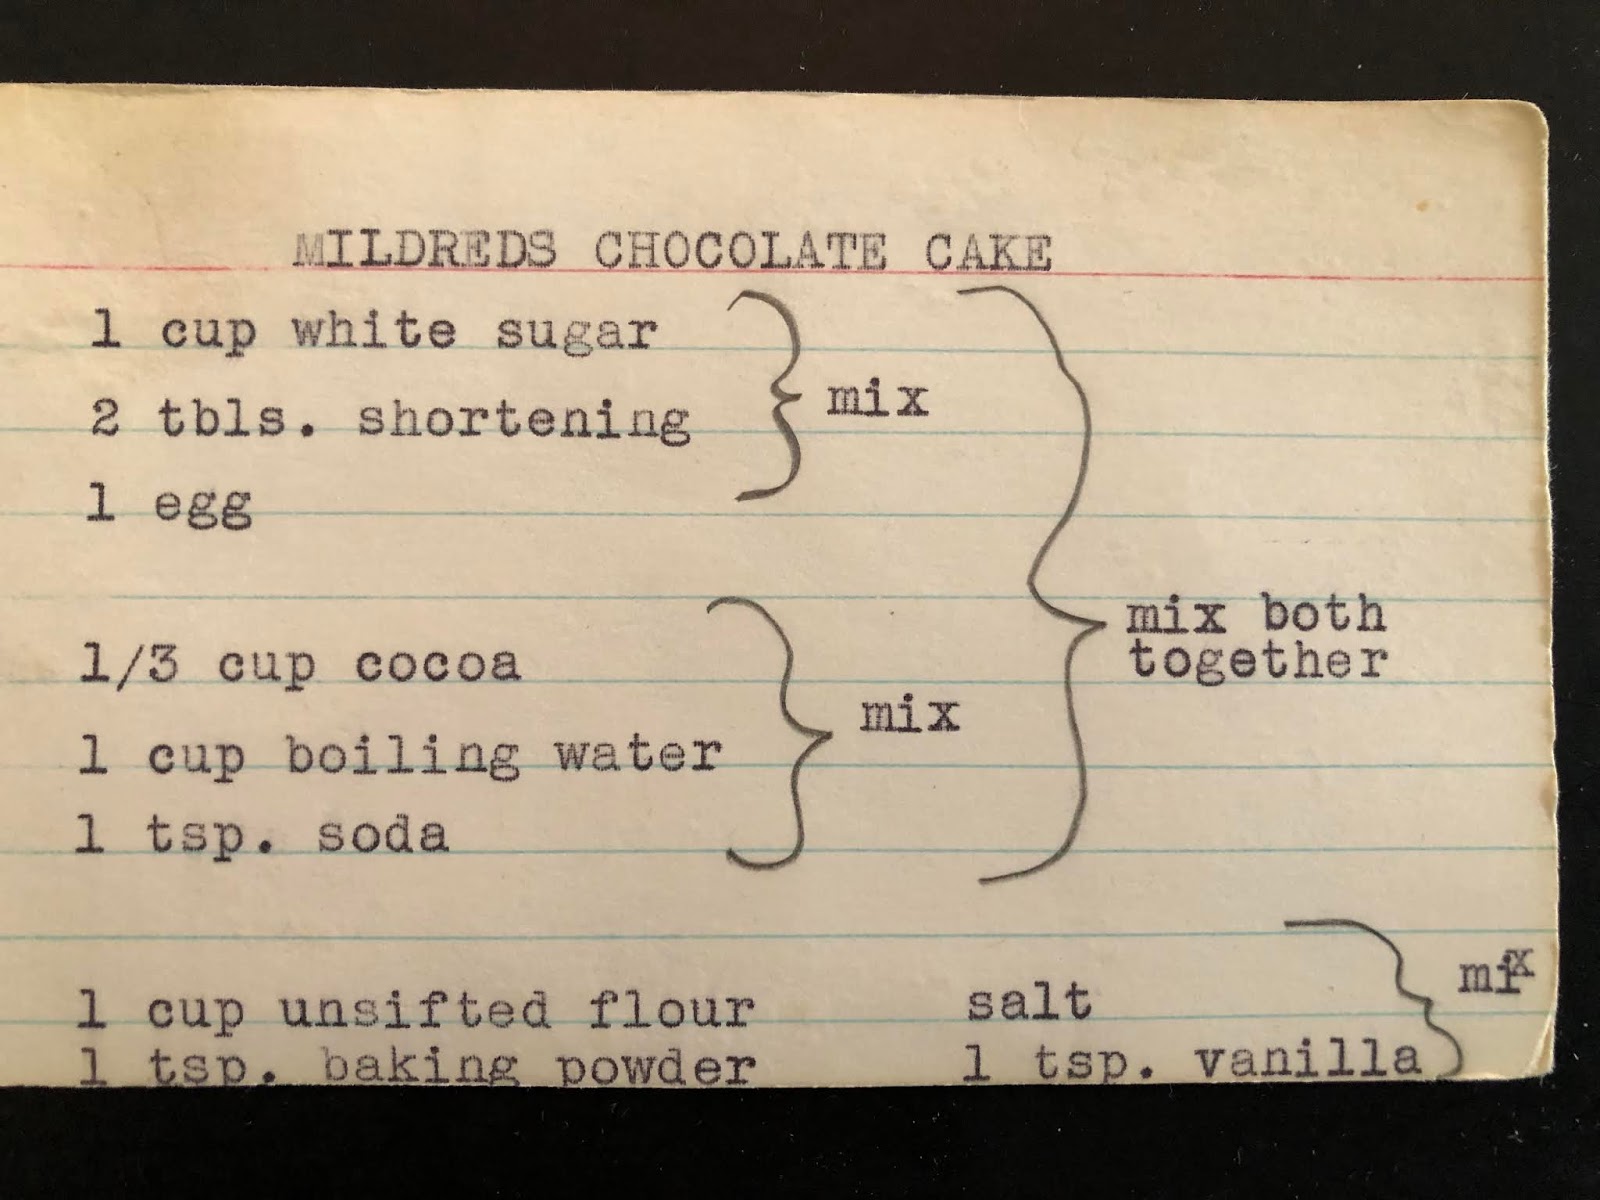 MILDREDS CHOCOLATE CAKE
1 cup white sugar
2 tbls. shortening
mix
1 egg
1/3 cup cocoa
1 cup boiling water
mix
1 tsp. soda
mix both
together
1 cup unsifted flour salt
1 tsp. baking powder 1 tsp. vanilla
mix